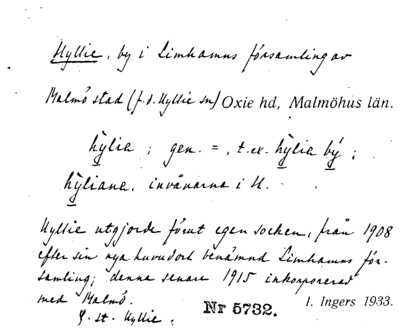 Hyllie, by i Limhamns församling av
Malmö stad (f.d. Hyllie sn) Oxie hd, Malmöhus län.
hỳlia ; gen. = , t.ex. hỳlia bý ;
hỳliana, invånarna i H.
Hyllie utgjorde förut egen socken, från 1908
efter sin nya huvudort benämnd Limhamns för-
samling; denna senare 1915 inkorporerad
med Malmö.
J. st. Hyllie.
Nr 5732.
I. Ingers 1933.